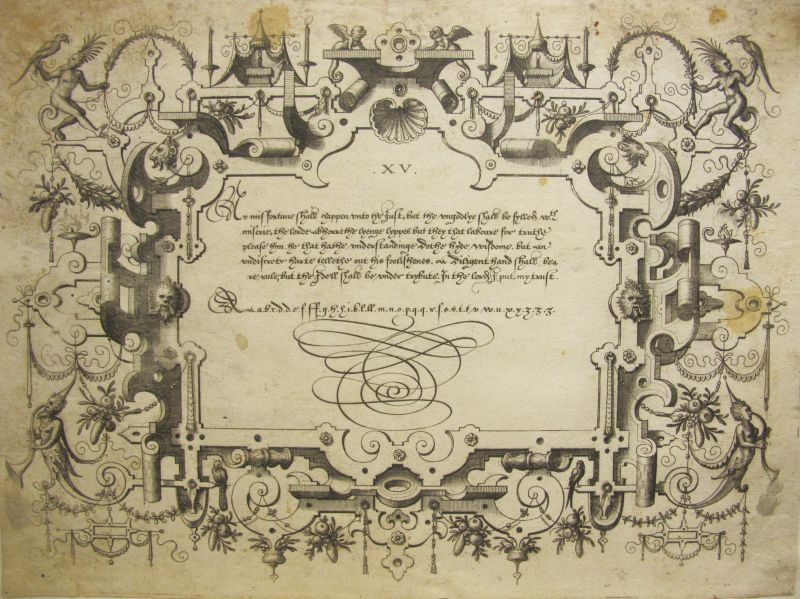 . XV .
No misfortune shall happen vnto the Just, but the vngodlye shall be fylled wth
miserie, the lorde abhorre the lyenge lyppes but they that laboure for truthe
please him. he that hathe vnderstandinge dothe hyde wisdome. but an
vndiscrete harte tellethe out his foolishenes. A Diligent hand shall bea=
re rule, but the Idell shall be vnder trybute. In the lord put, my trust
A a. a. b. c. d. d. e. f. ff. g. h. h. i. k. l. ll. m. n. o. p. q. q. r. s. o. s. t. t. v. w. u. x. y. z. z. z.